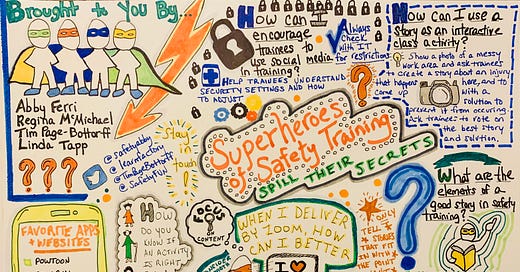 Brought to You By...
Abby Ferri
Regina McMichael
Tim Page-Bottorff
Linda Tapp
@Safetyabby
@LearnFactory
@TimPageBottorff
@SafetyFUN
Stay
in
touch
HOW can I
encourage
trainees to
use social media
in training?
Always
Check
with IT
for restrictions
HELP TRAINEES UNDERSTAND
SECURITY SETTINGS AND HOW
TO ADJUST
HOW can I use a
story as an interactive
class activity?
Show a photo of a messy
work area and ask trainees
to create a story about an injury
that happened in area, and to
come up with a
solution to
prevent it from occurring
Ask trainees to vote on
the best story
and solution.
Superheroes
of Safety Training
SPILL THEIR SECRETS
???
FAVORITE APPS
+ WEBSITES
POWTOON
HOW
DO YOU
KNOW IF
AN ACTIVITY
IS RIGHT
FOCUS
ON
CONTENT
WHEN I DELIVER
BY ZOOM, HOW
CAN I BETTER
I
ONLY
TELL
STORIES
THAT FIT
IN WITH
THE POINT
?
What are the
elements of a
good story in safety
training?